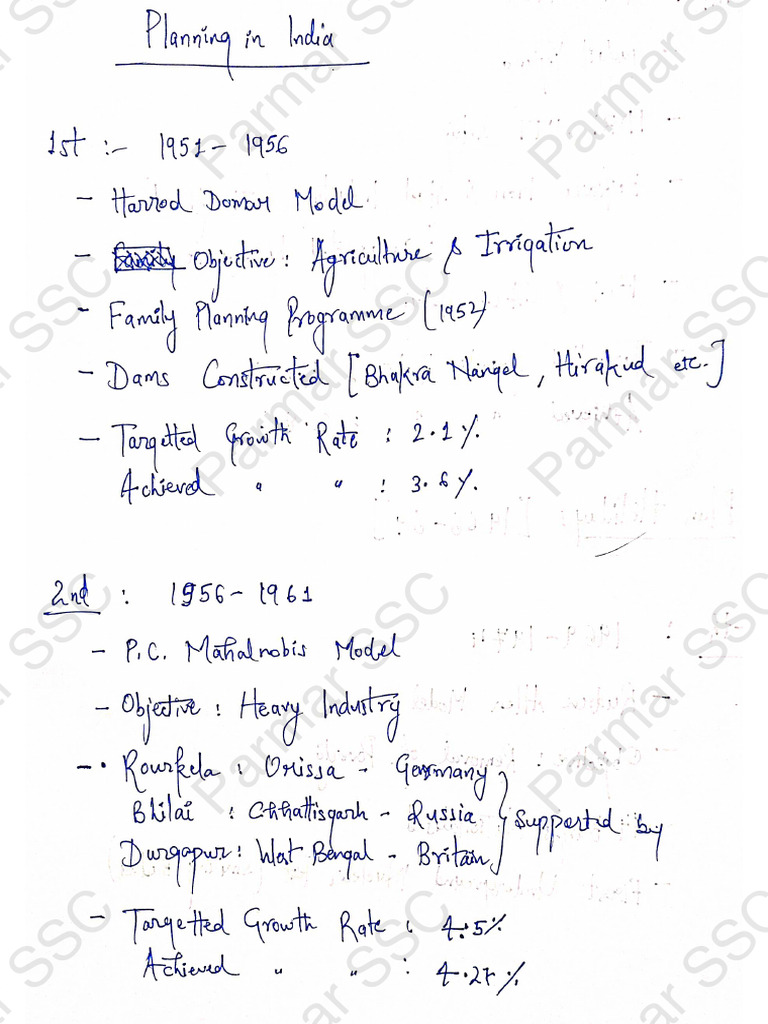 Planning in India
1st :- 1951 - 1956
- Harrod Domar Model
- Objective : Agriculture & Irrigation
- Family Planning Programme (1952)
- Dams Constructed [Bhakra Nangel, Hirakud etc.]
- Targetted Growth Rate : 2.1%.
Achieved " " : 3.6%.
2nd : 1956 - 1961
- P.C. Mahalnobis Model
- Objective : Heavy Industry
- • Rourkela : Orissa - Germany
Bhilai : Chhattisgarh - Russia } Supported by
Durgapur : West Bengal - Britain
- Targetted Growth Rate : 4.5%
Achieved " " : 4.27%
Parmar SSC